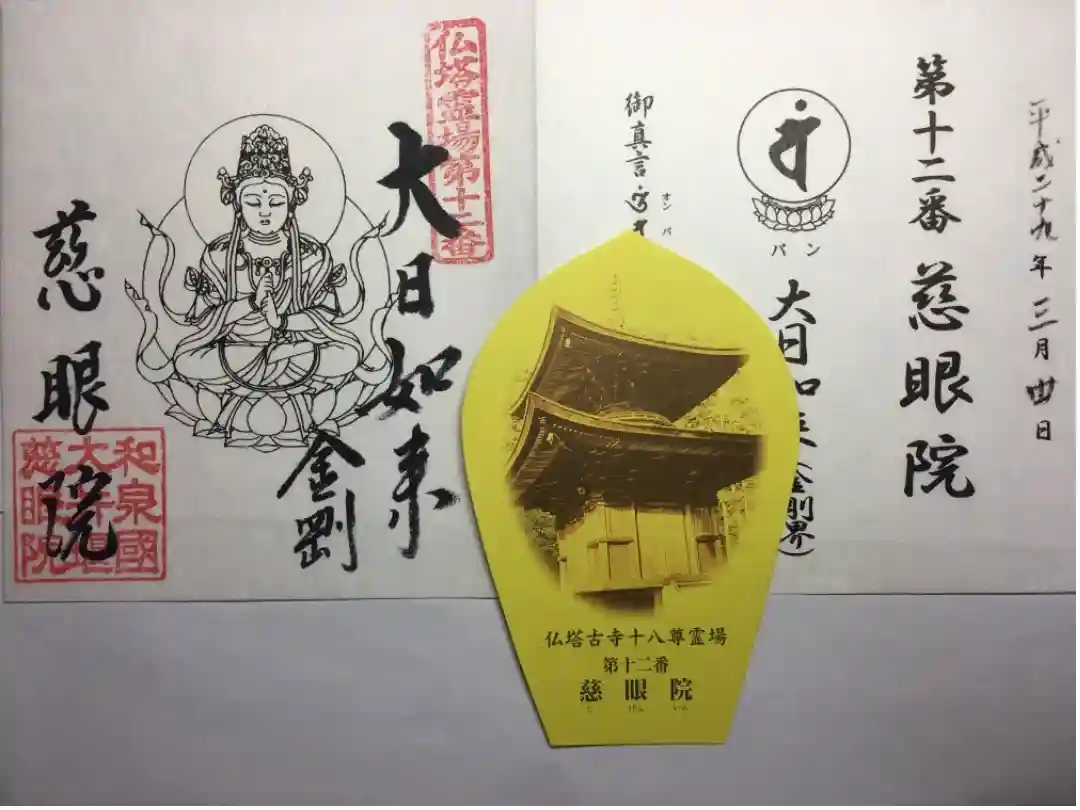 平成二十九年三月廿日
第十二番 慈眼院
バン
大日如来(金剛界)
御真言
オン バ
仏塔霊場第十二番
大日如来
金剛
慈眼院
和泉國
慈眼院
仏塔古寺十八尊霊場
第十二番
慈眼院